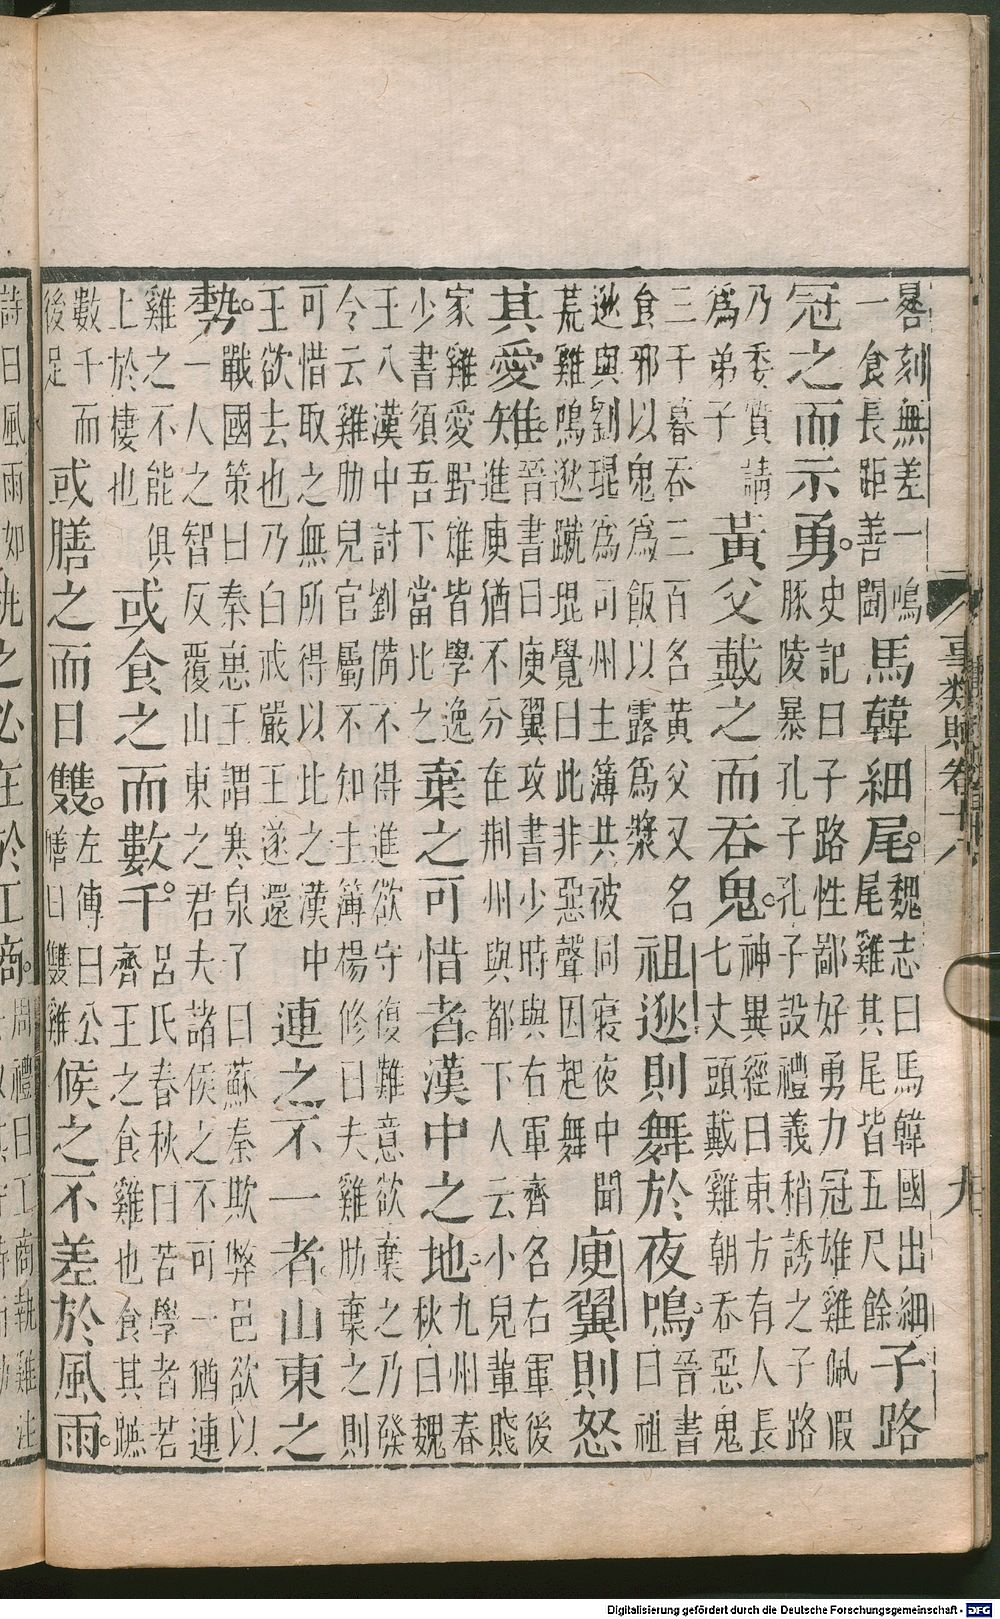 晷刻無差一鳴
一食長距善鬬
馬韓細尾。
魏志曰馬韓國出細
尾雞其尾皆五尺餘
子路
冠之而示勇。
史記曰子路性鄙好勇力冠雄雞佩猳
豚陵暴孔子孔子設禮義稍誘之子路
乃委質請
爲弟子
黃父戴之而吞鬼。
神異經曰東方有人長
七丈頭戴雞朝吞惡鬼
三千暮吞三百名黃父又名
食邪以鬼爲飯以露爲漿
祖逖則舞於夜鳴。
晉書
曰祖
逖與劉琨爲司州主簿共被同寢夜中聞
荒雞鳴逖蹴琨覺曰此非惡聲因起舞
庾翼則怒
其愛雉。
晉書曰庾翼攻書少時與右軍齊名右軍後
進庾猶不分在荆州與都下人云小兒輩賤
家雞愛野雉皆學逸
少書須吾下當比之
棄之可惜者。漢中之地。
九州春
秋曰魏
王入漢中討劉備不得進欲守復難意欲棄之乃發
令云雞肋兒官屬不知主簿楊修曰夫雞肋棄之則
可惜取之無所得以比之漢中
王欲去也乃白戒嚴王遂還
連之不一者山東之
勢。
戰國策曰秦惠王謂寒泉子曰蘇秦欺弊邑欲以
一人之智反覆山東之君夫諸侯之不可一猶連
雞之不能俱
上於棲也
或食之而數千。
呂氏春秋曰若學者若
齊王之食雞也食其蹠
數千而
後足
或膳之而日雙。
左傳曰公
膳日雙雞
候之不差於風雨。
事類賦卷十八
九
Digitalisierung gefördert durch die Deutsche Forschungsgemeinschaft - DFG